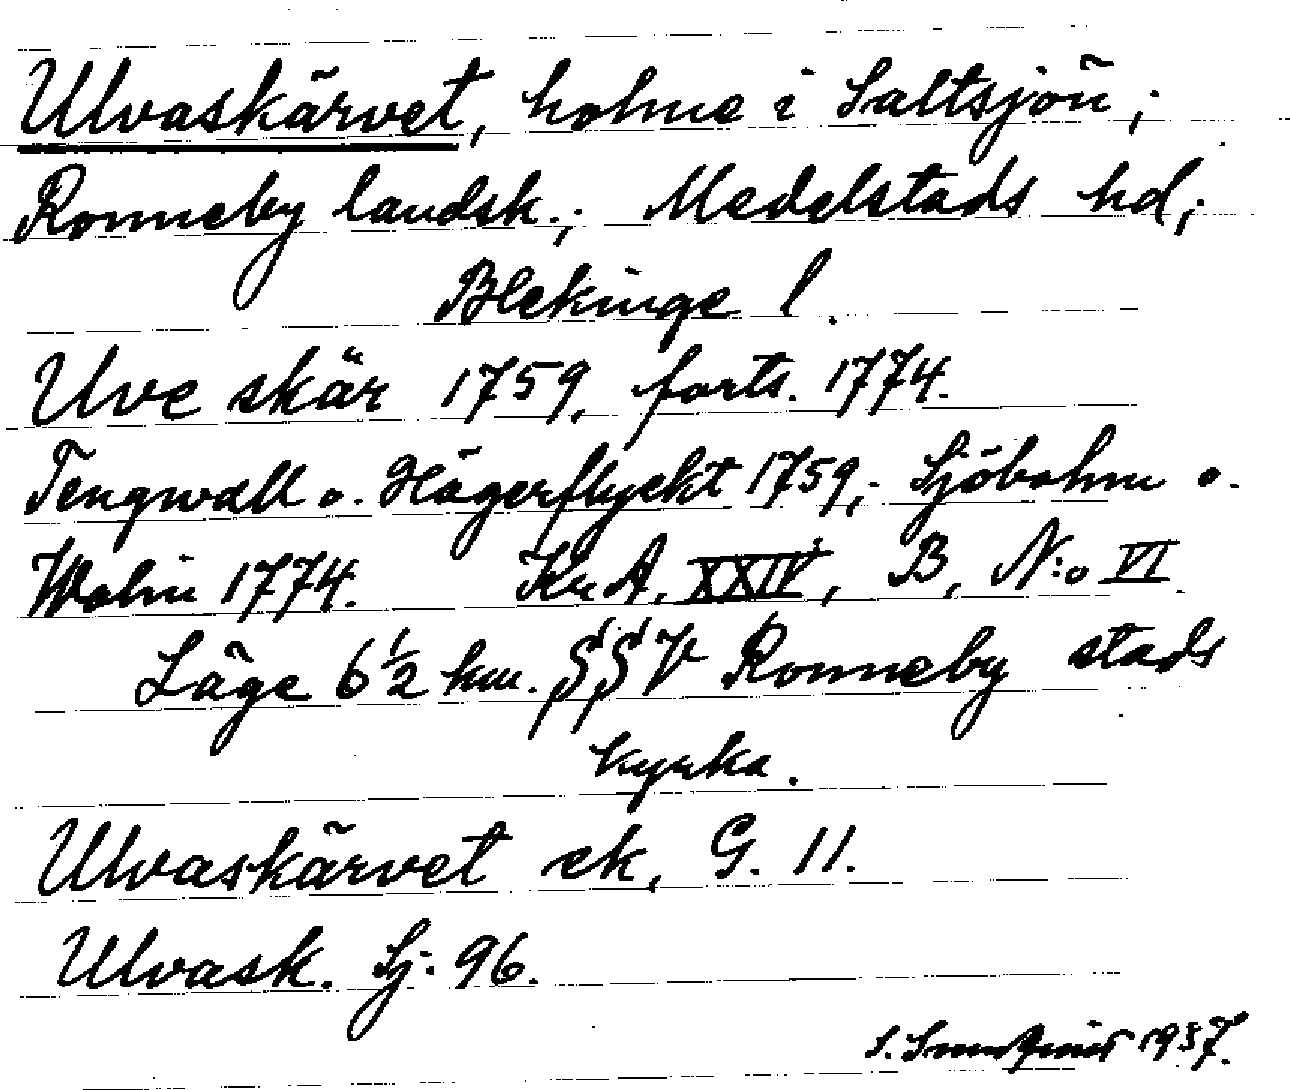 Ulvaskärvet, holme i Saltsjön;
Ronneby landsk.; Medelstads hd,
Blekinge l.
Uve skär 1759, forts. 1774.
Tengwall o. Hägerflyckt 1759; Sjöbohm o.
Wolin 1774. Kr A. XXIV, B, N:o VI
Läge 6 1/2 km. SSV Ronneby stads
kyrka.
Ulvaskärvet ek. G. 11.
Ulvask. Sj. 96.
S. 1937.